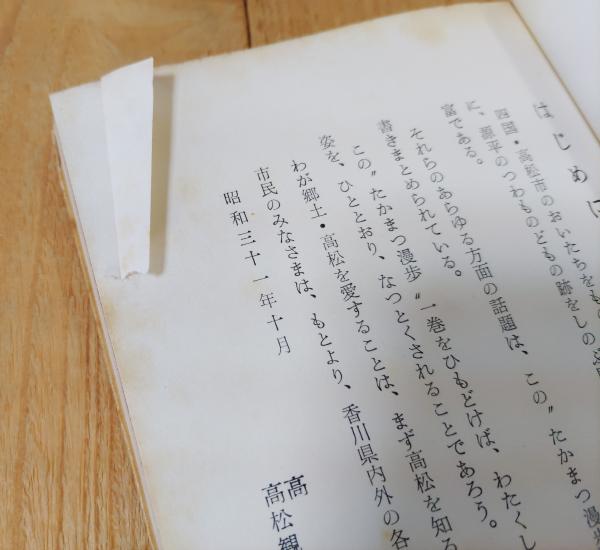 はじめに
四国・高松市のおいたちをも
に、源平のつわものどもの跡をしの
富である。
それらのあらゆる方面の話題は、この〝たかまつ漫歩
書きまとめられている。
この〝たかまつ漫歩〟一巻をひもどけば、わたくし
姿を、ひととおり、なつとくされることであろう。
わが郷土・高松を愛することは、まず高松を知る
市民のみなさまは、もとより、香川県内外の各
昭和三十一年十月
高
高松観